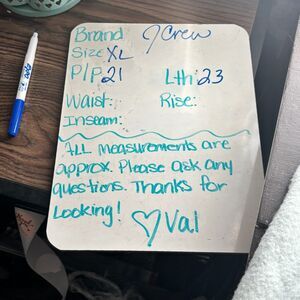 Brand JCrew
Size XL
P/P 21 Lth: 23
Waist: Rise:
Inseam:
ALL measurements are
approx. Please ask any
questions. Thanks for
Looking!
♡ Val